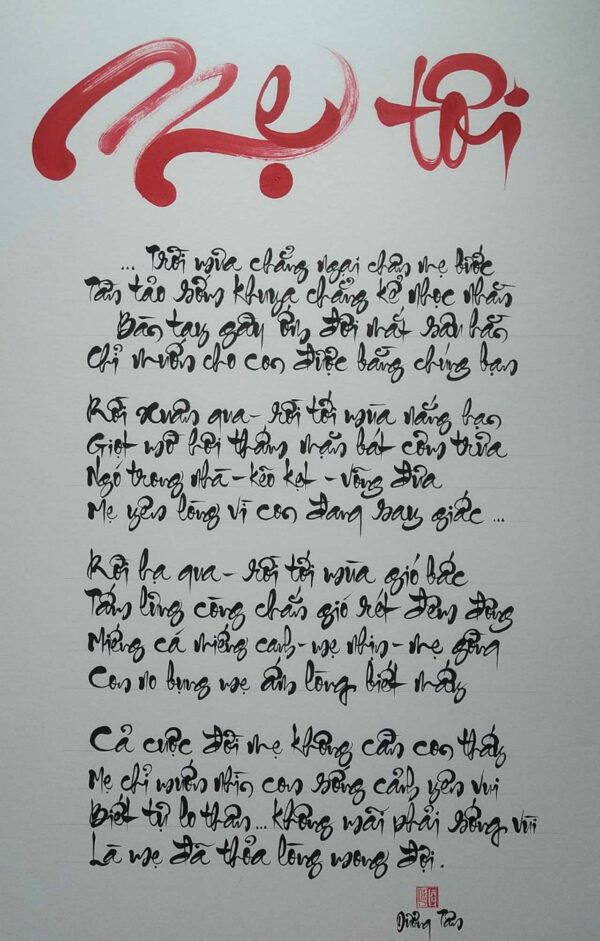 Mẹ tôi
... Trời mưa chẳng ngại chân mẹ bước
Tần tảo sớm khuya chẳng kể nhọc nhằn
Bàn tay gầy ốm đôi mắt sâu hẳn
Chỉ muốn cho con được bằng chúng bạn
Rồi xuân qua - rồi tới mùa nắng hạn
Giọt mồ hôi thấm mặn bát cơm trưa
Ngó trong nhà - kẽo kẹt - võng đưa
Mẹ yên lòng vì con đang say giấc ...
Rồi hạ qua - rồi tới mùa gió bấc
Tấm lưng còng chắn gió rét đêm đông
Miếng cá miếng canh - mẹ nhịn - mẹ gồng
Con no bụng mẹ ấm lòng biết mấy
Cả cuộc đời mẹ không cần con thấy
Mẹ chỉ muốn nhìn con sống cảnh yên vui
Biết tự lo thân ... không mãi phải sống vùi
Là mẹ đã thỏa lòng mong đợi.
Dưỡng Tâm